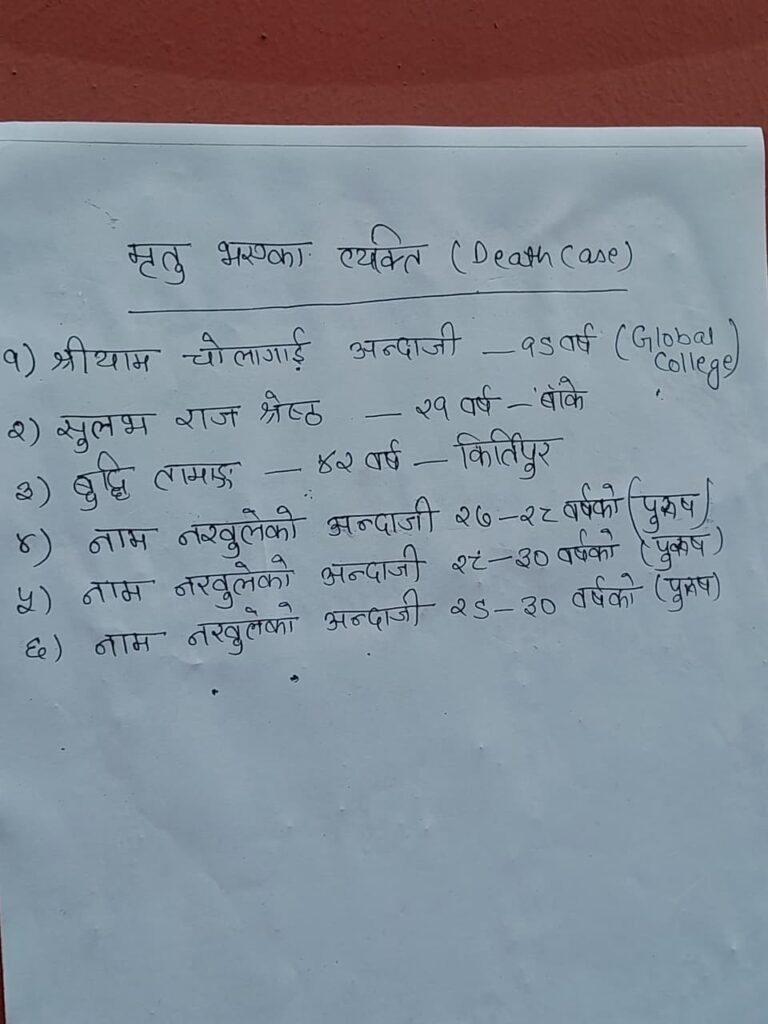 मृतु भएका व्यक्ति (Death Case)
१) श्रीयाम चोलागाई अन्दाजी – १९ वर्ष (Global College)
२) सुलभ राज श्रेष्ठ – २१ वर्ष – बाँके
३) बुद्धि तामाङ – ४२ वर्ष – किर्तिपुर
४) नाम नखुलेको अन्दाजी २७–२८ वर्षको (पुरुष)
५) नाम नखुलेको अन्दाजी २८–३० वर्षको (पुरुष)
६) नाम नखुलेको अन्दाजी २९–३० वर्षको (पुरुष)